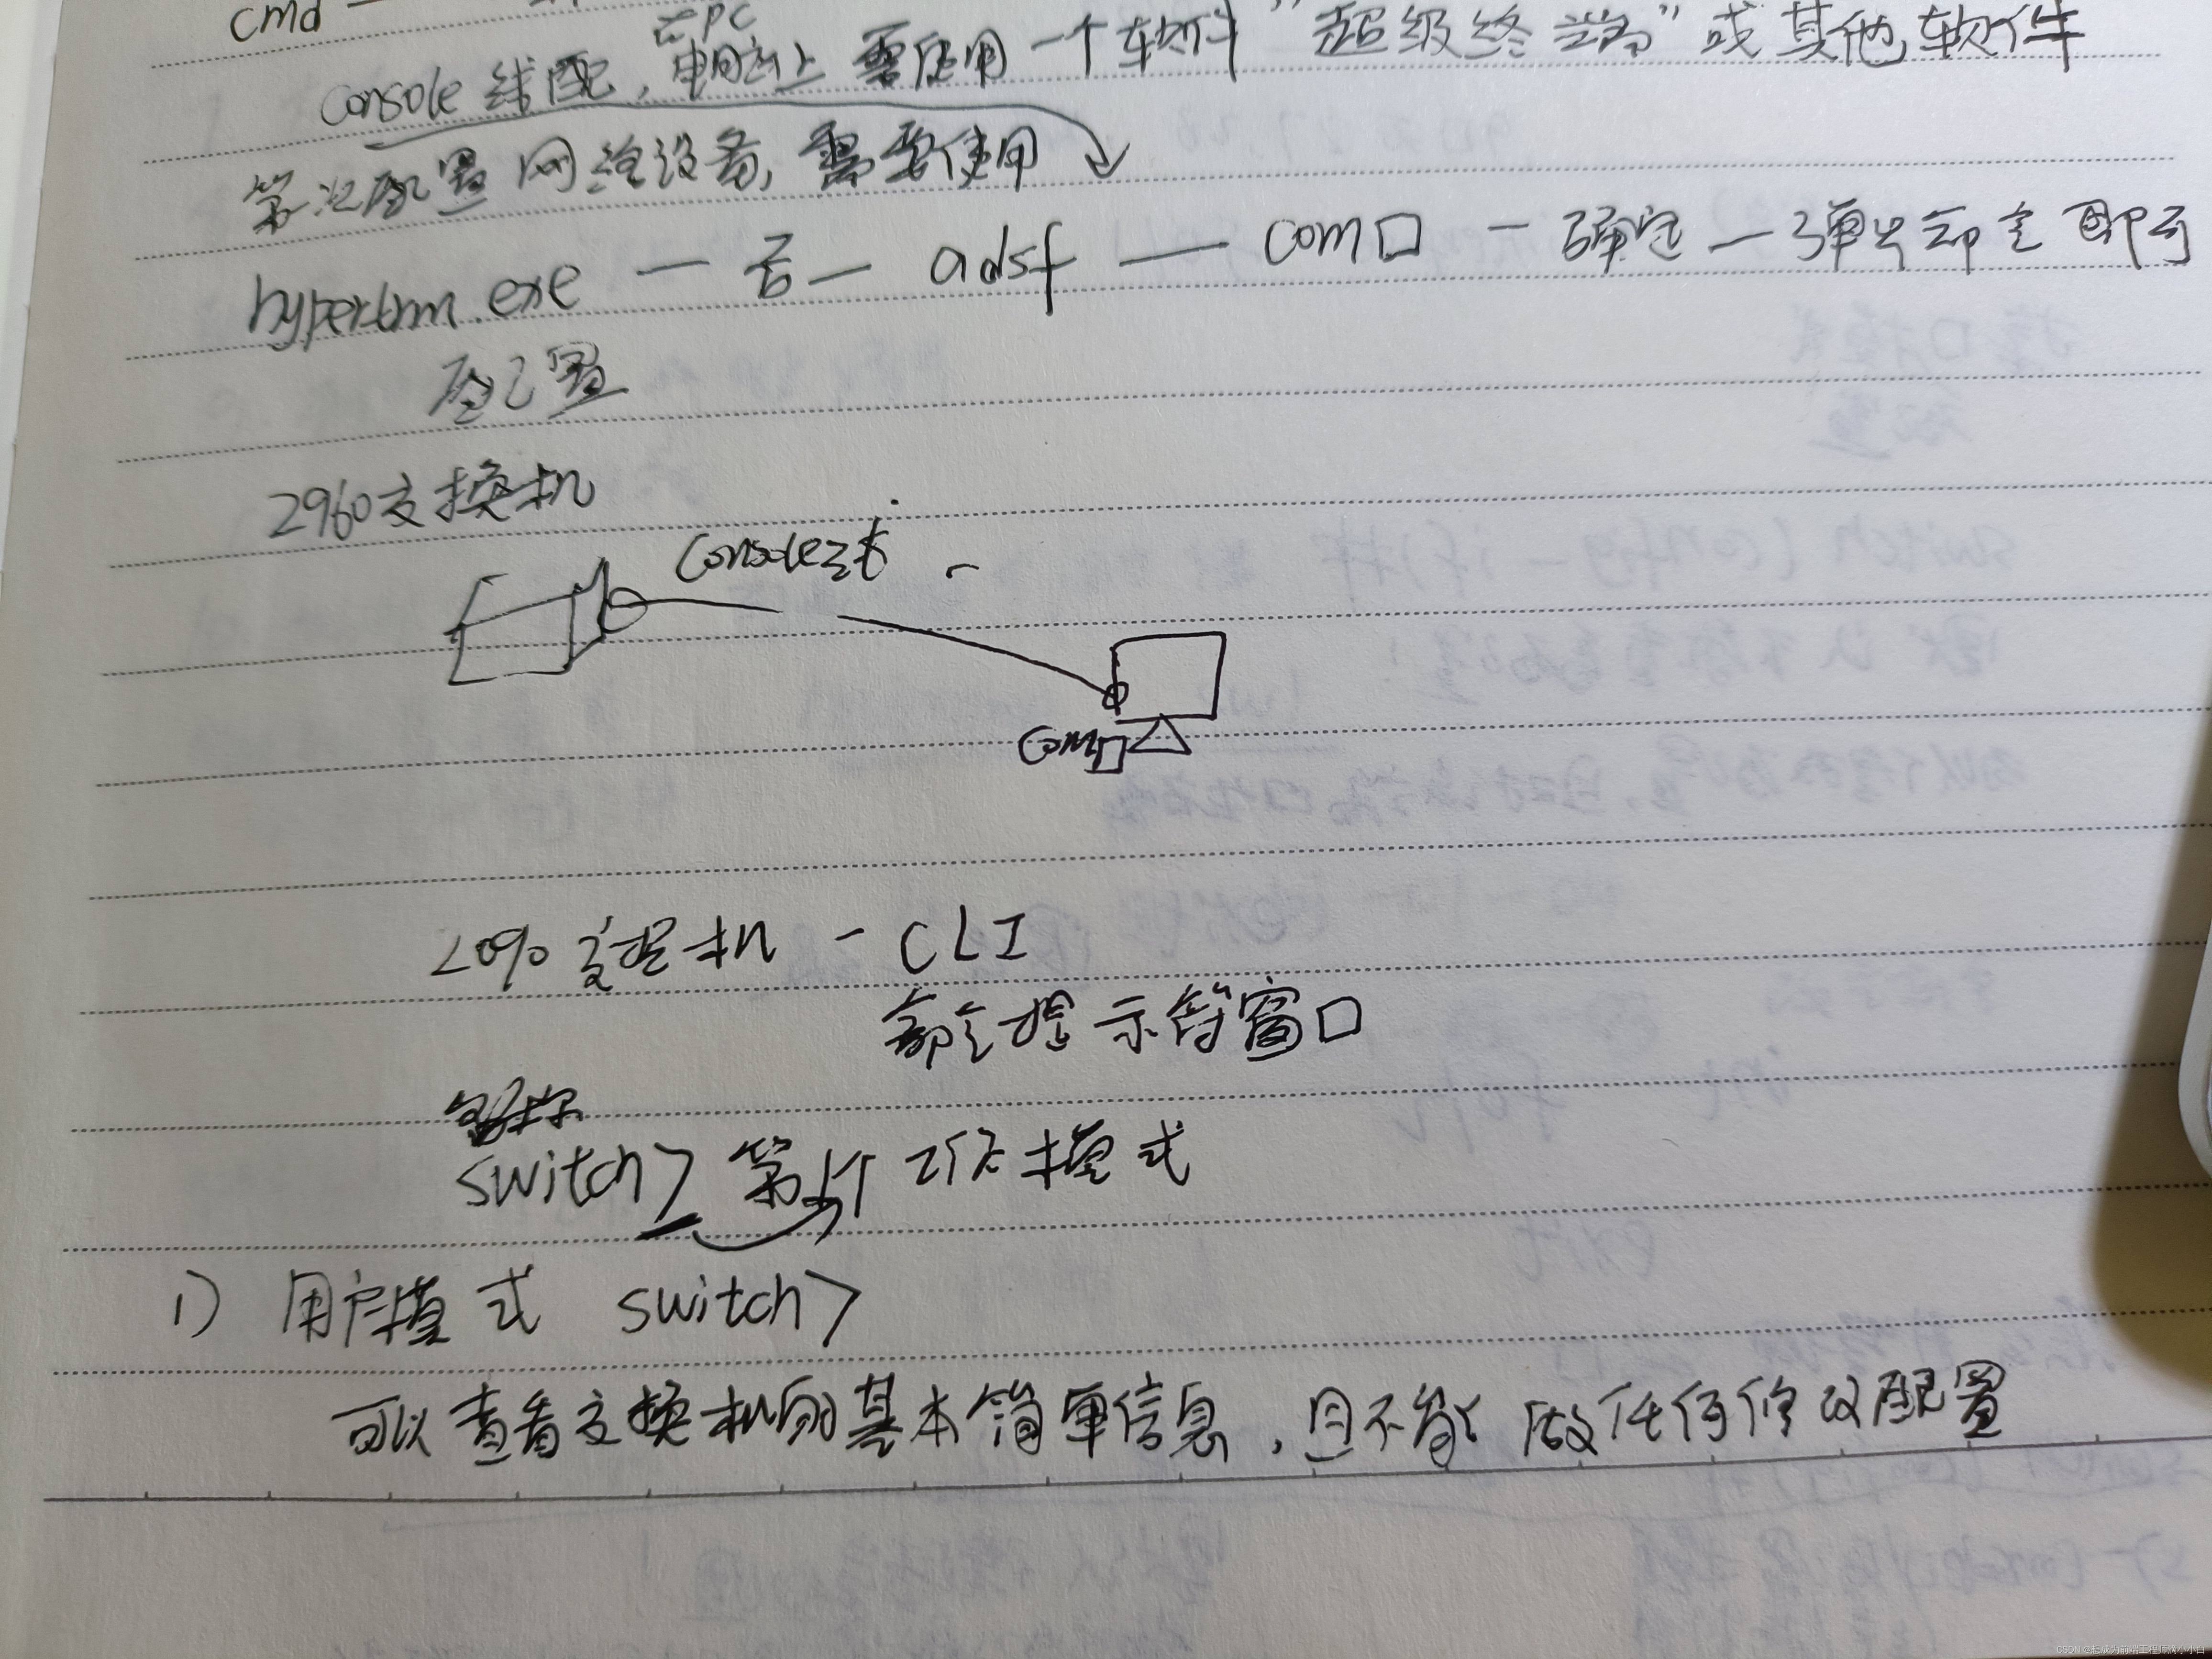 cmd
在PC
console 线配, 电脑上 需使用 一个软件 "超级终端" 或其他软件
第一次配置网络设备, 需要使用
hypertrm.exe — 否 — adsf — com口 — 确定 — 弹出 确定 即可
配置
2960交换机
Console线
Com口
2960 交换机 - CLI
命令提示符窗口
switch> 第一个工作模式
1) 用户模式 switch>
可以查看交换机的基本简单信息, 且不能做任何修改配置
CSDN @想成为前端工程师滴小小白